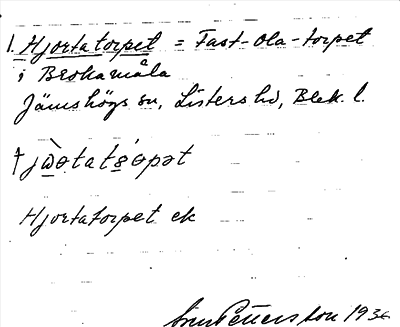 1. Hjortatorpet = Fast-Ola-torpet
i Brokamåla
Jämshögs sn, Listers hd, Blek. l.
Hjortatorpet ek
Sven Pettersson 1936